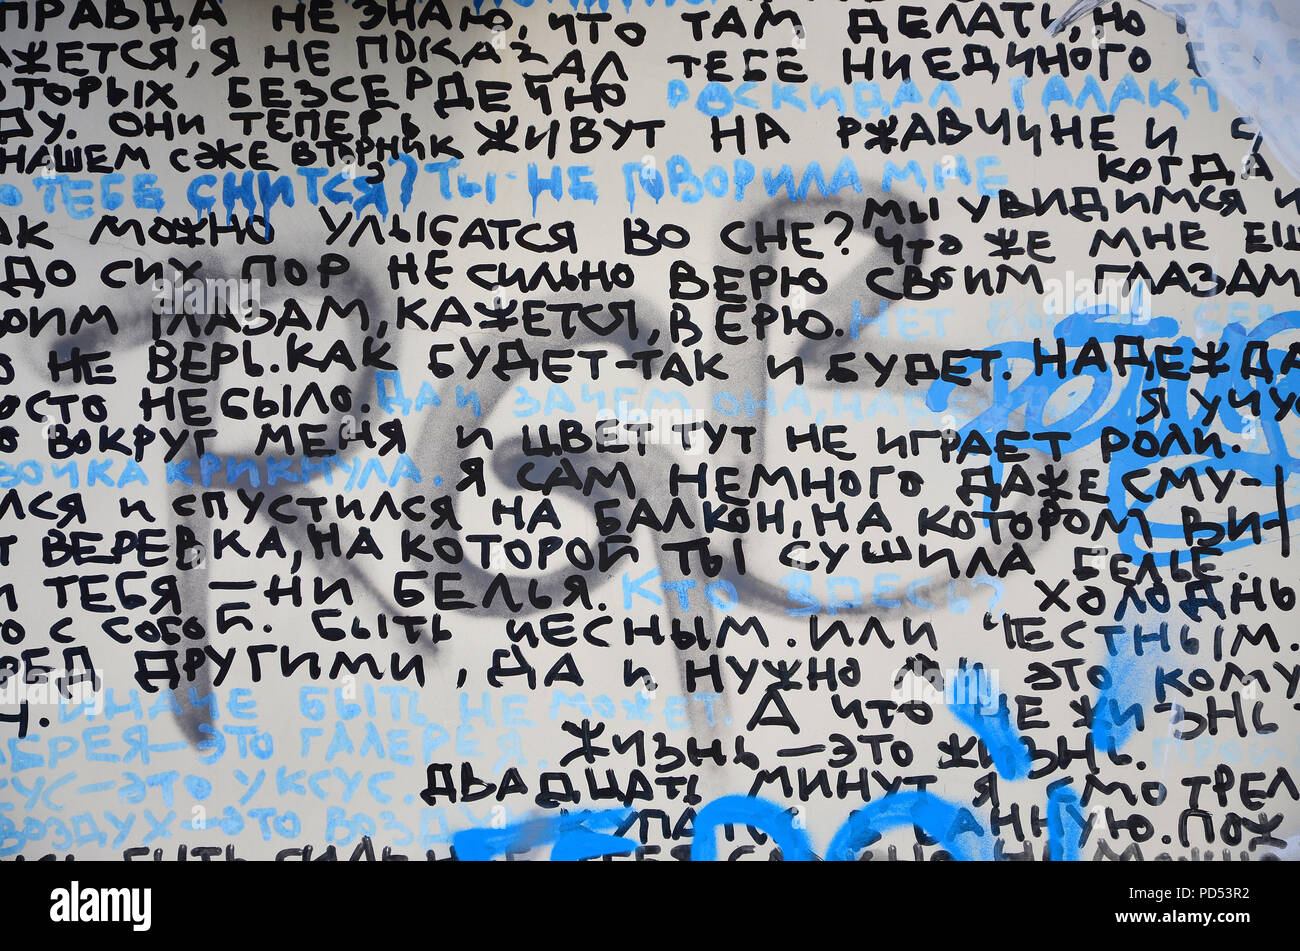 ПРАВДА НЕ ЗНАЮ, ЧТО ТАМ ДЕЛАТЬ, НО ТАМ
АЖЕТСЯ, Я НЕ ПОКАЗАЛ ТЕБЕ НИЕДИНОГО
ОТОРЫХ БЕЗСЕРДЕЧНО РОСКИДАЛ ГАЛАКТ
ДУ. ОНИ ТЕПЕРЬ ЖИВУТ НА РЖАВЧИНЕ И С
НАШЕМ СЭКЕ ВТОРНИК КОГДА
О ТЕБЕ СНИТСЯ? ТЫ НЕ ГОВОРИЛА МНЕ
АК МОЖНО УЛЫБАТСЯ ВО СНЕ? МЫ УВИДИМСЯ И
ДО СИХ ПОР НЕ СИЛЬНО ВЕРЮ СВОИМ ГЛАЗАМ
ЧТО ЖЕ МНЕ ЕЩ
ОИМ ГЛАЗАМ, КАЖЕТСЯ, ВЕРЮ. НЕТ
О НЕ ВЕРЬ. КАК БУДЕТ-ТАК И БУДЕТ. НАДЕЖДА
ОСТО НЕ БЫЛО. ДА И ЗАЧЕМ ОНА, Я УЧУ
О ВОКРУГ МЕНЯ И ЦВЕТ ТУТ НЕ ИГРАЕТ РОЛИ.
ВОЙКА КРИКНУЛА. Я САМ НЕМНОГО ДАЖЕ СМУ-
ЛСЯ И СПУСТИЛСЯ НА БАЛКОН, НА КОТОРОМ ВИ-
Т ВЕРЕВКА, НА КОТОРОЙ ТЫ СУШИЛА БЕЛЬЕ.
И ТЕБЯ — НИ БЕЛЬЯ. КТО ЗДЕСЬ? ХОЛОДНЬ
О С СОБОЙ. БЫТЬ ЧЕСНЫМ. ИЛИ ЧЕСТНЫМ.
РЕД ДРУГИМИ, ДА И НУЖНО ЭТО КОМУ
Ч. ИНАЧЕ БЫТЬ НЕ МОЖЕТ. А ЧТО НЕ ЖИЗНЬ -
ЕРЕЯ — ЭТО ГАЛЕРЕЯ. ЖИЗНЬ — ЭТО ЖИЗНЬ.
СУС — ЭТО УКСУС. ДВАДЦАТЬ МИНУТ Я СМОТРЕЛ
ВОЗДУХ — ЭТО ВОЗДУХ КУПАТЬ ВАННУЮ. ПОХ
БЫТЬ СИЛЬН
alamy
Image ID: PD53R2
www.alamy.com